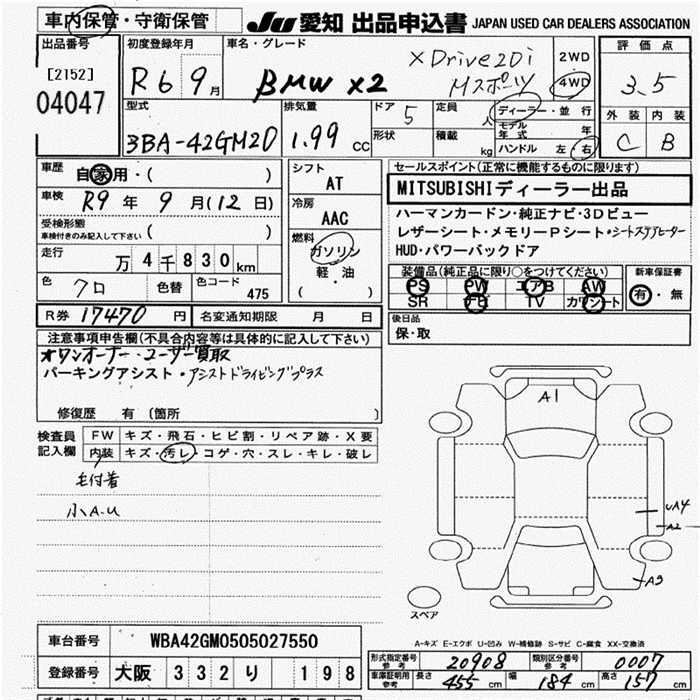 車内保管・守衛保管
JU 愛知 出品申込書 JAPAN USED CAR DEALERS ASSOCIATION
出品番号
[2152]
04047
初度登録年月
R6 9月
車名・グレード
BMW X2
XDrive20i
Mスポーツ
2WD
4WD
評価点
3.5
外装 内装
C B
型式
3BA-42GM20
排気量
1.99 CC
ドア 5
形状
定員 人
積載 kg
ディーラー・並行
モデル年式 年
ハンドル 左 右
車歴
自家用・( )
車検
R9年 9月(12日)
受検形態
車検付きのみ記入して下さい ( )
走行
万4千830km
色 クロ 色替 色コード 475
シフト
AT
冷房
AAC
燃料
ガソリン
軽・油
( )
セールスポイント(正常に機能するものに限ります)
MITSUBISHIディーラー出品
ハーマンカードン・純正ナビ・3Dビュー
レザーシート・メモリーPシート・シートエアヒーター
HUD・パワーバックドア
装備品(純正品に限り○をつけてください)
PS PW エアB AW
SR ナビ TV カワシート
新車保証書
有・無
R券 17470 円 名変通知期限 月 日
後日品
保・取
注意事項申告欄(不具合内容等は具体的に記入して下さい)
オワンオーナー・ユーザー買取
パーキングアシスト・アシストドライビングプラス
修復歴 有 〔箇所 〕
検査員
記入欄
FW キズ・飛石・ヒビ割・リペア跡・X要
内装 キズ・汚レ・コゲ・穴・スレ・キレ・破レ
毛付着
小A-U
A1
UA4
A2
A3
スペア
A-キズ E-エクボ U-凹み W-補修跡 S-サビ C-腐食 XX-交換済
車台番号 WBA42GM0505027550
登録番号 大阪 332 り 198
形式指定番号 参考 20908 類別区分番号 参考 0007
車庫証明用 参考 長さ 455 cm 幅 184 cm 高さ 157 cm